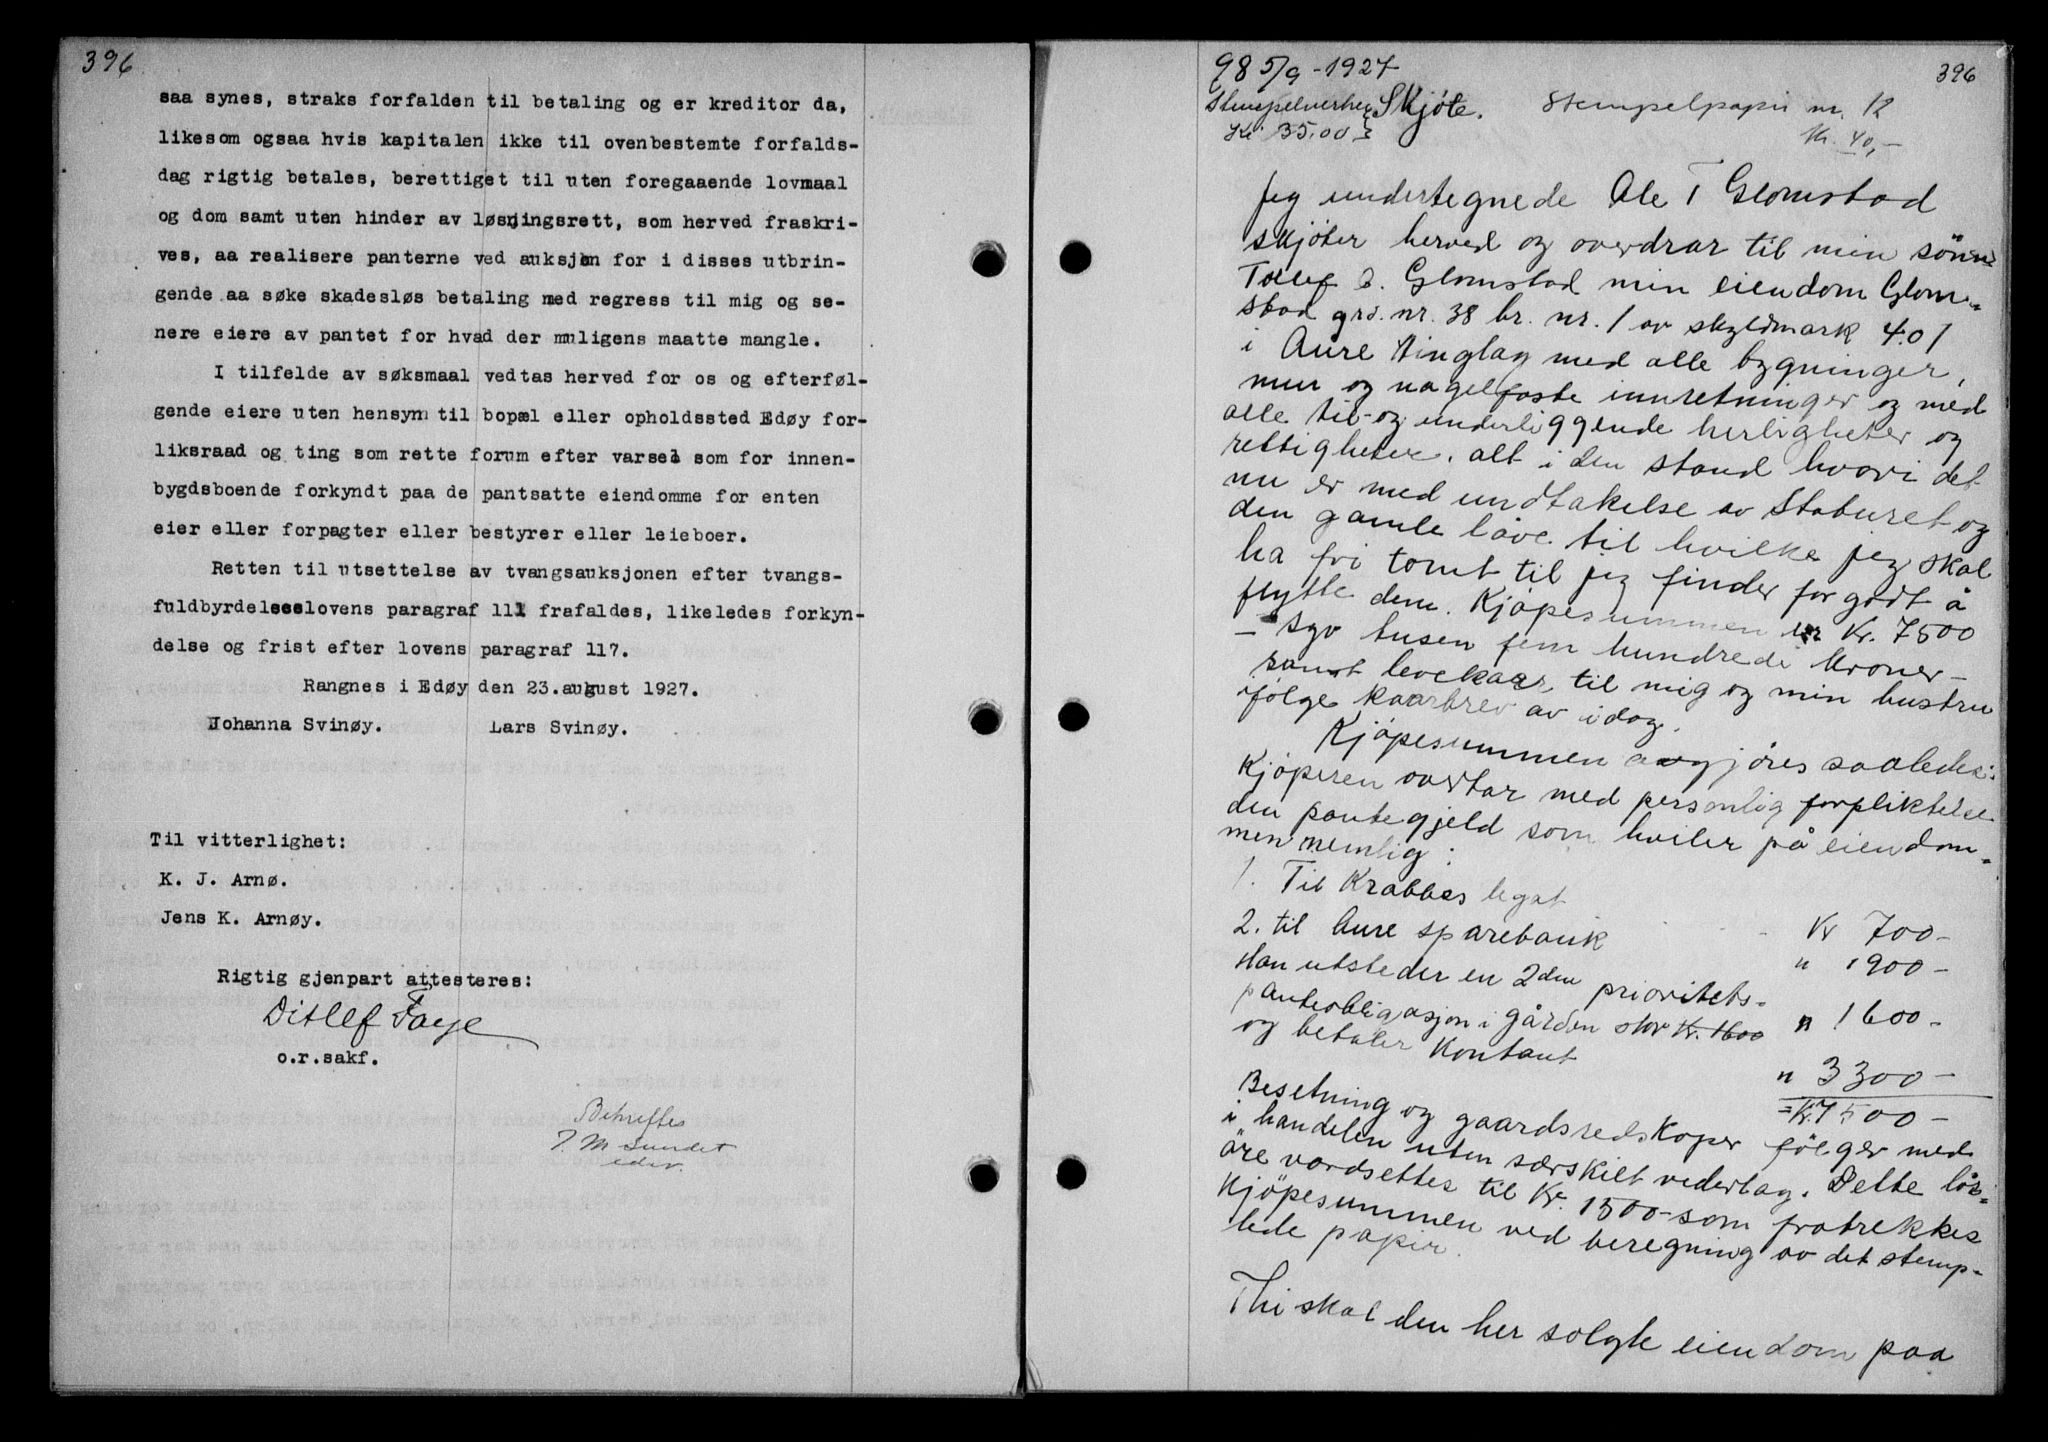 396
saa synes, straks forfalden til betaling og er kreditor da,
likesom ogsaa hvis kapitalen ikke til ovenbestemte forfalds-
dag rigtig betales, berettiget til uten foregaaende lovmaal
og dom samt uten hinder av løsningsrett, som herved fraskri-
ves, aa realisere panterne ved auksjon for i disses utbrin-
gende aa søke skadesløs betaling med regress til mig og se-
nere eiere av pantet for hvad der muligens maatte mangle.
I tilfelde av søksmaal vedtas herved for os og efterføl-
gende eiere uten hensyn til bopæl eller opholdssted Edøy for-
liksraad og ting som rette forum efter varsel som for innen-
bygdsboende forkyndt paa de pantsatte eiendomme for enten
eier eller forpagter eller bestyrer eller leieboer.
Retten til utsettelse av tvangsauksjonen efter tvangs-
fuldbyrdelseslovens paragraf 111 frafaldes, likeledes forkyn-
delse og frist efter lovens paragraf 117.
Rangnes i Edøy den 23.august 1927.
Johanna Svinøy. Lars Svinøy.
Til vitterlighet:
K. J. Arnø.
Jens K. Arnøy.
Rigtig gjenpart attesteres:
Ditlef Faye
o.r.sakf.
Bekreftes
T. M Sundet
edsv.
98 5/9 - 1927
396
Skjøte. Stempelpapir nr. 12
Kr. 35.00 kr. 40,-
Jeg undertegnede Ole T Glomstad
skjöter herved og overdrar til min sönn
Tollef O. Glomstad min eiendom Glom-
stad grd. nr. 38 br. nr. 1 av skyldmark 4.01
i Aure tinglag med alle bygninger,
mur og nagelfaste innretninger og med
alle til- og underliggende herligheter og
rettigheter. alt i den stand hvori det
nu er med undtakelse av Staburet og
den gamle låve til hvilke jeg skal
ha fri tomt til jeg finder for godt å
flytte dem. Kjöpesummen er Kr. 7500
- syv tusen fem hundrede kroner -
samt levekaar til mig og min hustru
ifölge kaarbrev av idag.
Kjöpesummen avgjöres saaledes:
Kjöperen overtar med personlig forpliktelse
den pantegjeld som hviler på eiendom-
men nemlig:
1. Til Krabbes legat Kr 700 -
2. til Aure sparebank " 1900 -
Han utsteder en 2den prioritets-
panteobligasjon i gården stor Kr. 1600 " 1600 -
og betaler kontant " 3300 -
= Kr. 7500 -
Besetning og gaardsredskaper fölger med
i handelen uten særskilt vederlag. Dette lös-
öre verdsettes til Kr. 1500 - som fratrekkes
kjöpesummen ved beregning av det stemp-
lede papir.
Thi skal den her solgte eiendom paa